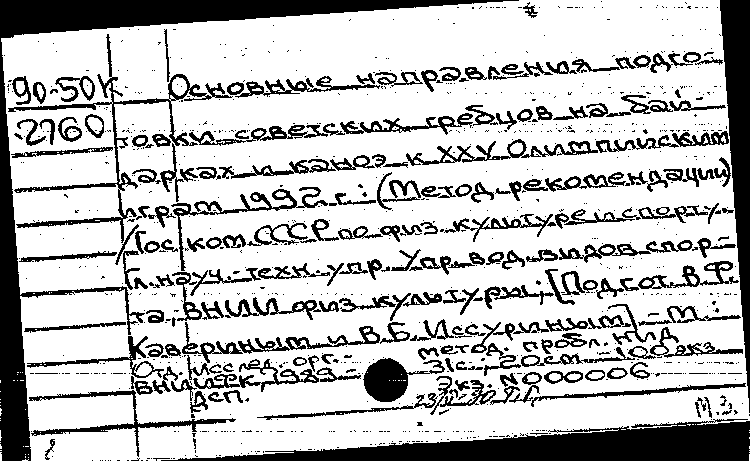 90-50К Основные направления подго-
2760 товки советских гребцов на бай-
дарках и каноэ к XXV Олимпийским
играм 1992 г.: (Метод. рекомендации)
/Гос. ком. СССР по физ. культуре и спорту.
Гл. науч.-техн. упр. Упр. вод. видов спор-
та, ВНИИ физ. культуры; [Подгот. В.Ф.
Кавериным и В.Б. Иссуриным] - М.:
Отд. исслед. орг.- метод. пробл. НИД
ВНИИФК, 1989.- 31с.; 20см.-100 экз.
ДСП. Экз. N000006.
М.З.